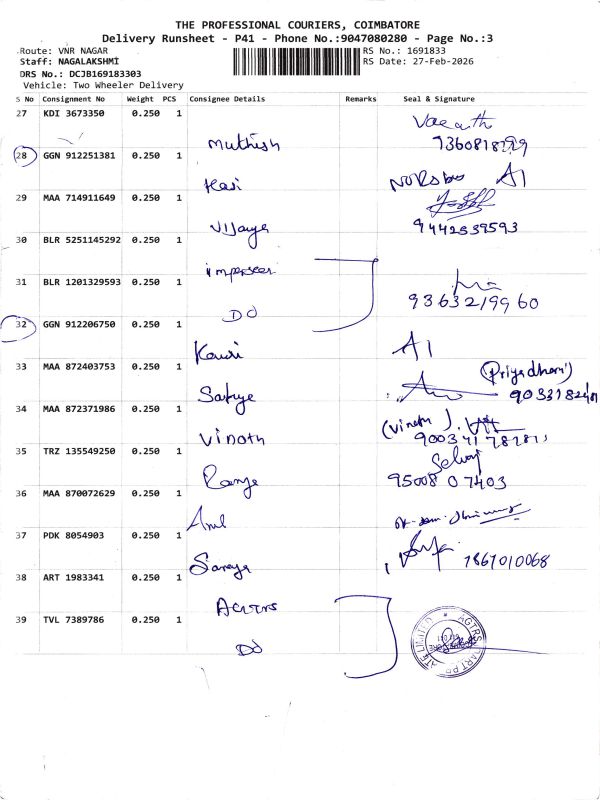 THE PROFESSIONAL COURIERS, COIMBATORE
Delivery Runsheet - P41 - Phone No.:9047080280 - Page No.:3
Route: VNR NAGAR RS No.: 1691833
Staff: NAGALAKSHMI RS Date: 27-Feb-2026
DRS No.: DCJB169183303
Vehicle: Two Wheeler Delivery
S No Consignment No Weight PCS Consignee Details Remarks Seal & Signature
27 KDI 3673350 0.250 1
Muthish
28 GGN 912251381 0.250 1
Hari
29 MAA 714911649 0.250 1
Vijaya 9442639593
30 BLR 5251145292 0.250 1
31 BLR 1201329593 0.250 1
DO 9363219960
32 GGN 912206750 0.250 1
33 MAA 872403753 0.250 1
(Priyadharni)
34 MAA 872371986 0.250 1
Vinoth (Vinoth)
35 TRZ 135549250 0.250 1
Selvaj
9500807403
36 MAA 870072629 0.250 1
37 PDK 8054903 0.250 1
1867010068
38 ART 1983341 0.250 1
39 TVL 7389786 0.250 1
DO